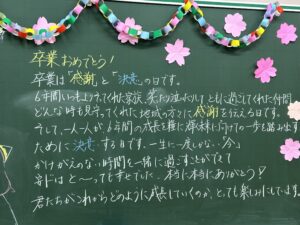 卒業おめでとう!
卒業は「感謝」と「決意」の日です。
6年間いつも支えてくれた家族、笑ったり泣いたりして ともに過ごしてくれた仲間
どんな時も見守ってくれた地域の方々に感謝を伝える日です。
そして、一人一人が6年間の成長を胸に 輝く未来に向けての一歩を踏み出す
ために決意する日です。一生に一度しかない「今」
かけがえのない時間を一緒に過ごすことができて
とーっても幸せでした。本当に本当にありがとう!
君たちがこれからどのように成長していくのか、とっても楽しみにしています。